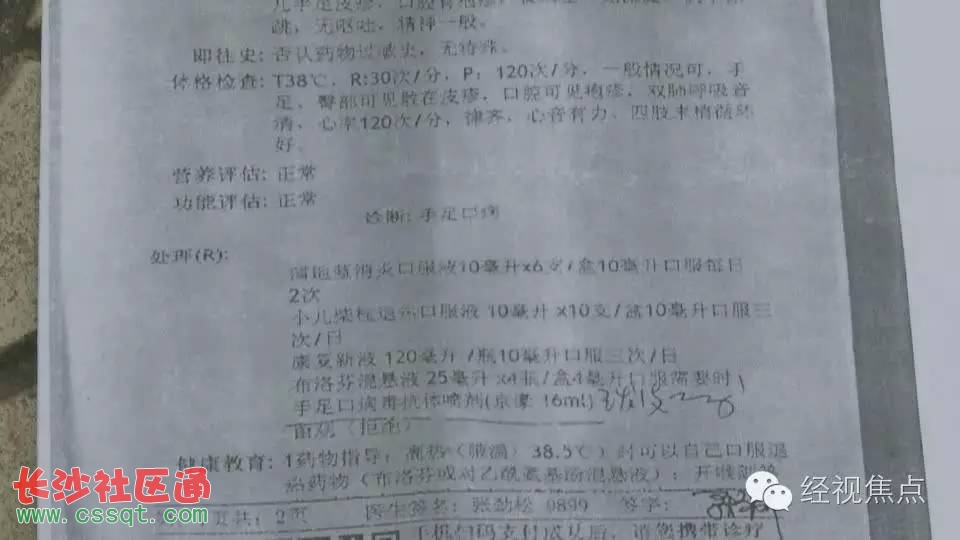 儿手足皮疹，口腔有疱疹，
跳，无呕吐，精神一般。
即往史：否认药物过敏史，无特殊。
体格检查：T38℃，R:30次/分，P：120次/分，一般情况可，手
足、臀部可见散在皮疹，口腔可见疱疹，双肺呼吸音
清，心率120次/分，律齐，心音有力，四肢末梢循环
好。
营养评估：正常
功能评估：正常
诊断：手足口病
处理(R)：
蒲地蓝消炎口服液10毫升x6支/盒10毫升口服每日
2次
小儿柴桂退热口服液 10毫升 x10支/盒10毫升口服三
次/日
康复新液 120毫升 /瓶10毫升口服三次/日
布洛芬混悬液 25毫升 x4瓶/盒4毫升口服需要时
手足口病毒抗体喷剂(京豫 16ml)
留观（拒绝）
健康教育：1药物指导：高热（腋温）38.5℃）时可以自己口服退
热药物（布洛芬或对乙酰氨基酚混悬液）；
页共：2页 医生签名：张劲松 0899 签字：
手机扫码支付成功后，请您携带诊疗
长沙社区通
www.cssqt.com
经视焦点